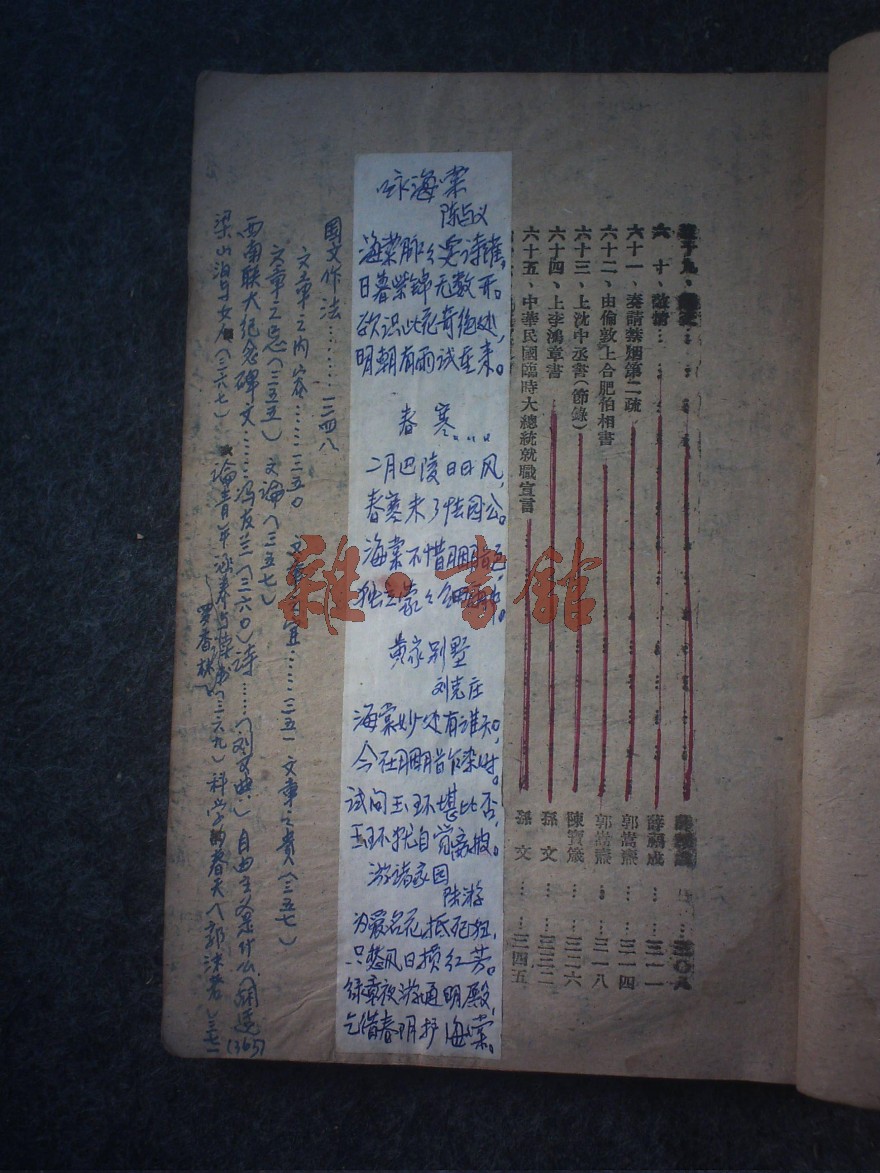 六十、
六十一、奏請禁煙第二疏 郭嵩燾 三一四
六十二、由倫敦上合肥伯相書 郭嵩燾 三一八
六十三、上沈中丞書(節錄) 陳寶箴 三二六
六十四、上李鴻章書 孫文 三三二
六十五、中華民國臨時大總統就職宣言 孫文 三四五
咏海棠
陈与义
海棠脉々要诗催,
日暮紫锦无数开。
欲识此花奇绝处,
明朝有雨试重来。
春寒
二月巴陵日日风,
春寒未了怯园公。
海棠不惜胭脂色,
独立蒙々细雨中。
黄家别墅
刘克庄
海棠妙处有谁知,
今在胭脂乍染时。
试问玉环堪比否,
玉环犹自觉离披。
游诸家园
陆游
为爱名花抵死狂,
只愁风日损红芳。
绿章夜游通明殿,
乞借春阴护海棠。
国文作法………三四八
文章之内容………(三五〇 文章 宜……(三五一 文章之贵(三五七)
文章之忌(三五五) 文论(三五七)
西南联大纪念碑文……冯友兰(三六〇)诗……(刘文典) 自由主义是什么(胡适(365)
梁山泊与女 (三六七) 论青年 与读书(三六九)科学的春天(郭沫若)三七一
罗香林
雜·書館